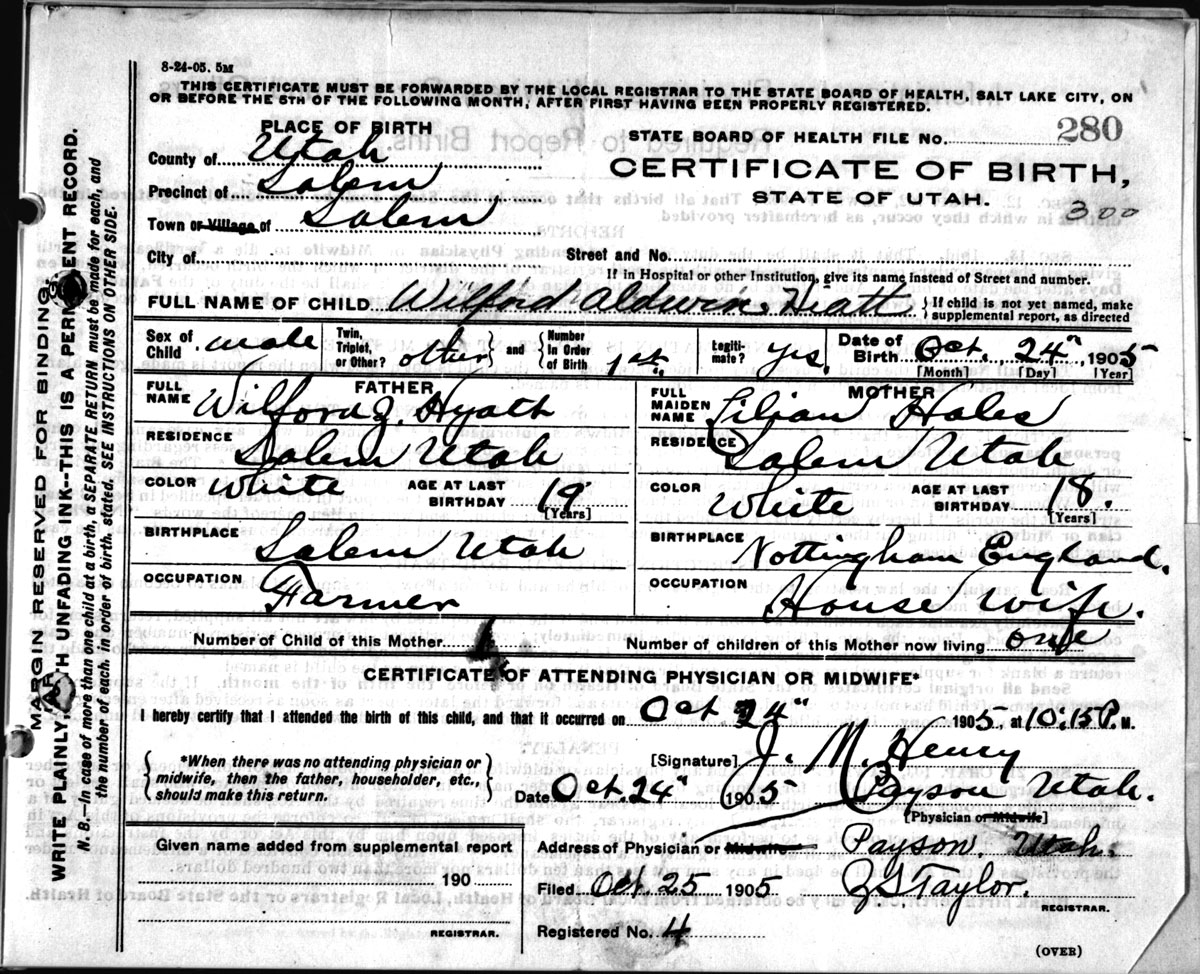 8-24-05. 5M
THIS CERTIFICATE MUST BE FORWARDED BY THE LOCAL REGISTRAR TO THE STATE BOARD OF HEALTH, SALT LAKE CITY, ON
OR BEFORE THE 5TH OF THE FOLLOWING MONTH, AFTER FIRST HAVING BEEN PROPERLY REGISTERED.
PLACE OF BIRTH
STATE BOARD OF HEALTH FILE No. 280
County of Utah
CERTIFICATE OF BIRTH,
Precinct of Salem
STATE OF UTAH.
300
Town or Village of Salem
City of Street and No.
If in Hospital or other Institution, give its name instead of Street and number.
FULL NAME OF CHILD Wilford Aldwin Hiatt { If child is not yet named, make
supplemental report, as directed
Sex of Child male Twin, Triplet, or Other? other } and { Number in Order of Birth 1st. Legitimate? yes Date of Birth Oct. 24" 1905
[Month] [Day] [Year]
FATHER
FULL NAME Wilford J. Hyatt
MOTHER
FULL MAIDEN NAME Lilian Hales
RESIDENCE Salem Utah
RESIDENCE Salem Utah
COLOR White AGE AT LAST BIRTHDAY 19 [Years]
COLOR White AGE AT LAST BIRTHDAY 18. [Years]
BIRTHPLACE Salem Utah
BIRTHPLACE Nottingham England.
OCCUPATION Farmer
OCCUPATION House Wife.
Number of Child of this Mother 1 Number of children of this Mother now living one
CERTIFICATE OF ATTENDING PHYSICIAN OR MIDWIFE*
I hereby certify that I attended the birth of this child, and that it occurred on Oct 24" 1905, at 10.15 P. M.
{ *When there was no attending physician or
midwife, then the father, householder, etc.,
should make this return. }
[Signature] J. M. Henry
Date Oct. 24" 1905 Payson Utah.
[Physician or Midwife]
Given name added from supplemental report
Address of Physician or Midwife Payson. Utah.
190
Filed Oct. 25 1905 Taylor.
REGISTRAR.
REGISTRAR.
Registered No. 4
(OVER)
MARGIN RESERVED FOR BINDING.
WRITE PLAINLY, WITH UNFADING INK--THIS IS A PERMANENT RECORD.
N. B.--In case of more than one child at a birth, a SEPARATE RETURN must be made for each, and
the number of each, in order of birth, stated. SEE INSTRUCTIONS ON OTHER SIDE.